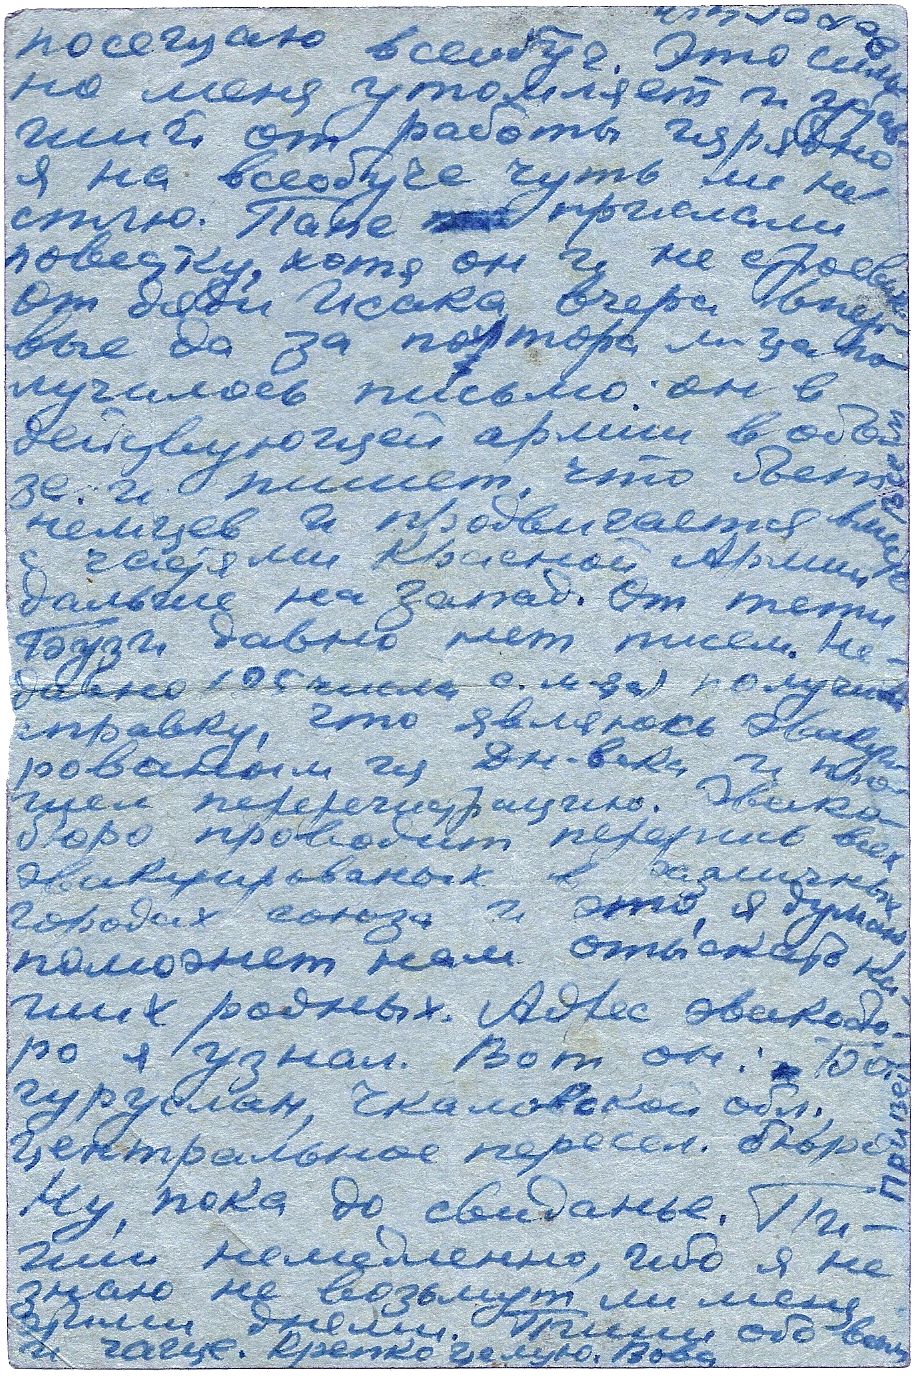 посещаю всеобуч. Это силь-
но меня утомляет и устав-
ший от работы изрядно
я на всеобуче чуть ли не
сплю. Папе прислали
повестку, хотя он и не строевик.
От дяди Исака вчера впер-
вые да за полтора м-ца по-
лучилось письмо: он в
действующей армии в обо-
зе и пишет, что бьет
немцев и продвигается вместе
с частями Красной Армии
дальше на запад. От тети
Бузи давно нет писем. Не-
давно (05 числа с. м-ца) получил
справку, что являюсь эвакуи-
рованым из Дн-вска, и про-
шел перерегистрацию. Эвако-
бюро проводит перепись всех
эвакуированых в различных
городах союза и это, я думаю
поможет нам отыскать на-
ших родных. Адрес эвакобю-
ро я узнал. Вот он: Бо-
гуруслан, Чкаловской обл.,
Центральное пересел. бюро
Ну, пока до свиданье. Пи-
ши немедленно, ибо я не
знаю не возьмут ли меня
этими днями. Пиши обо всем
и чаще. Крепко целую. Вова
Привет всем